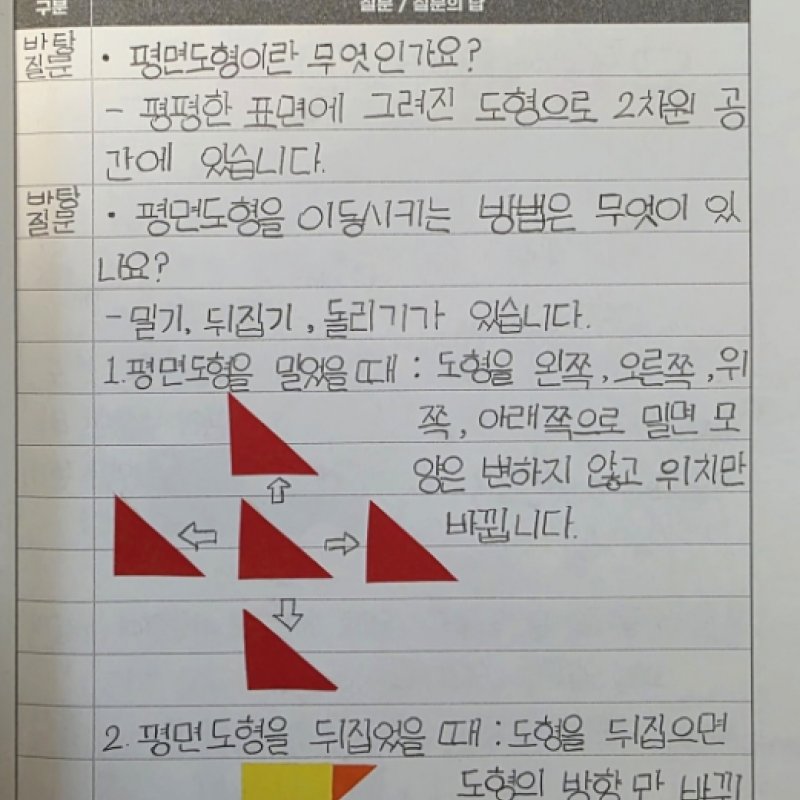 구분 질문 / 질문의 답
바탕
질문
• 평면도형이란 무엇인가요?
- 평평한 표면에 그려진 도형으로 2차원 공
간에 있습니다.
바탕
질문
• 평면도형을 이동시키는 방법은 무엇이 있
나요?
- 밀기, 뒤집기, 돌리기가 있습니다.
1. 평면도형을 밀었을 때 : 도형을 왼쪽, 오른쪽, 위
쪽, 아래쪽으로 밀면 모
양은 변하지 않고 위치만
바뀝니다.
2. 평면도형을 뒤집었을 때 : 도형을 뒤집으면
도형의 방향만 바뀌